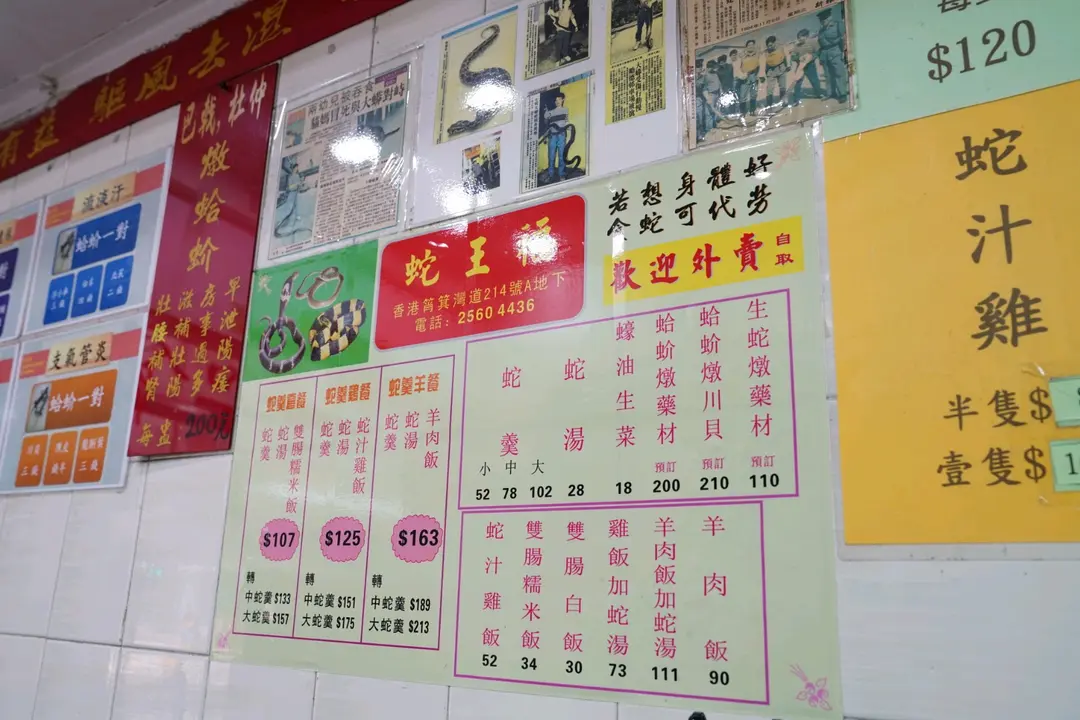 有益 驅風去濕
每
$120
巴戟,杜仲
燉蛤蚧
早泄陽痿
房事過多
滋補壯陽
壯腰補腎
每盅:200元
流淡汗
蛤蚧一對
支氣管炎
蛤蚧一對
蛇王福
香港筲箕灣道214號A地下
電話: 2560 4436
若想身體好
食蛇可代勞
歡迎外賣 自取
蛇羹套餐
雙腸糯米飯
蛇湯
蛇羹
$107
轉
中蛇羹 $133
大蛇羹 $157
蛇羹雞餐
蛇汁雞飯
蛇湯
蛇羹
$125
轉
中蛇羹 $151
大蛇羹 $175
蛇羹羊餐
羊肉飯
蛇湯
蛇羹
$163
轉
中蛇羹 $189
大蛇羹 $213
生蛇燉藥材 預訂 110
蛤蚧燉川貝 預訂 210
蛤蚧燉藥材 預訂 200
蠔油生菜 18
蛇湯 28
蛇羹 小 中 大 52 78 102
羊肉飯 90
羊肉飯加蛇湯 111
雞飯加蛇湯 73
雙腸白飯 30
雙腸糯米飯 34
蛇汁雞飯 52
蛇汁雞
半隻$
壹隻$